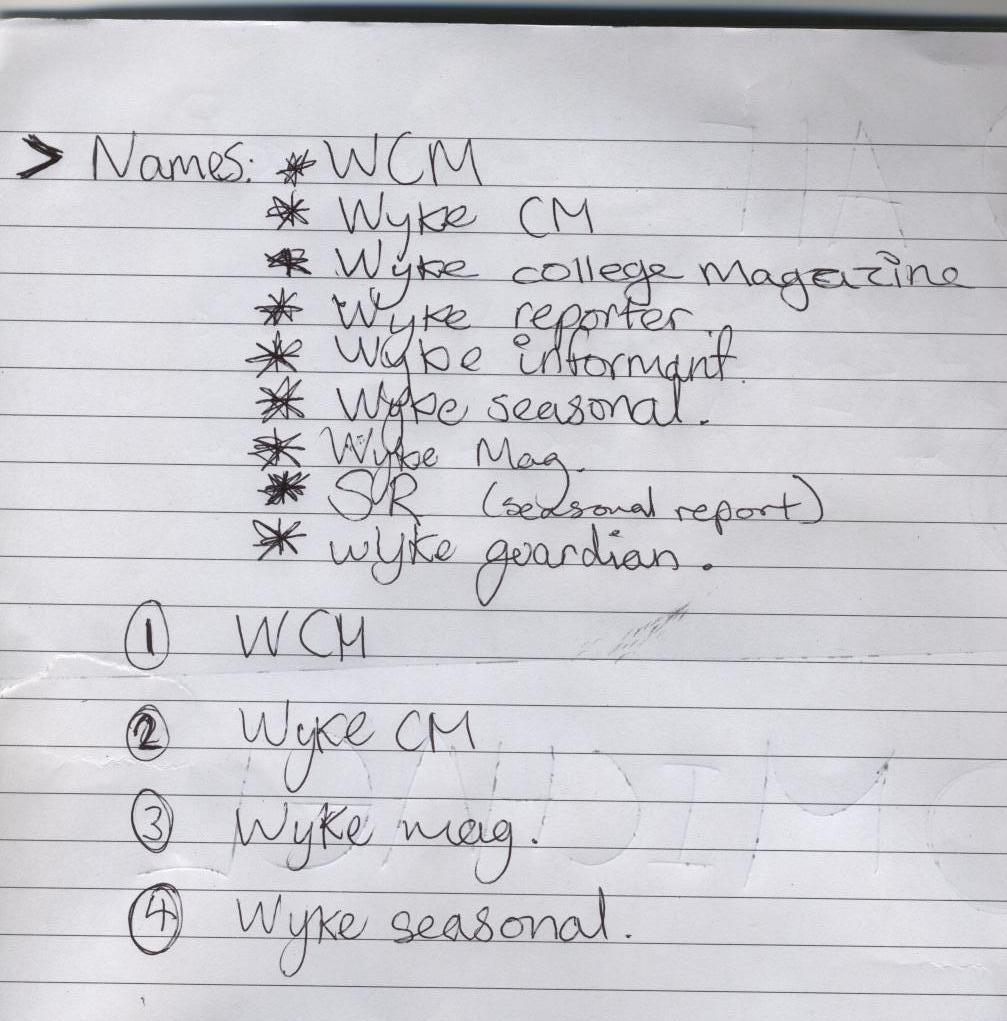 > Names: * WCM
* Wyke CM
* Wyke college magazine
* Wyke reporter
* Wyke informant.
* Wyke seasonal.
* Wyke Mag.
* SR (seasonal report)
* wyke guardian.
① WCM
② Wyke CM
③ Wyke mag.
④ Wyke seasonal.